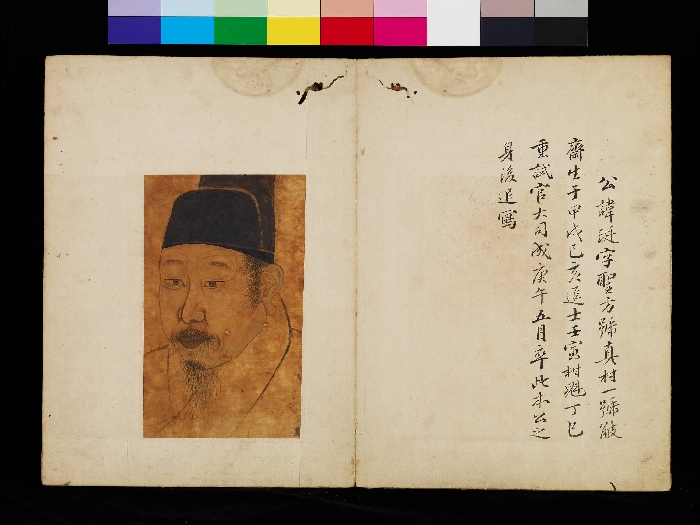 公諱 字聖方號真村一號敝
齋生于甲戌己亥進士壬寅 丁巳
重試官大司成庚午五月卒此本公之
身後追寫